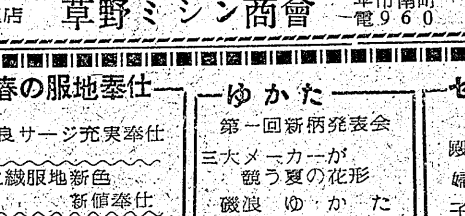 店 草野ミシン商會 電960
春の服地奉仕
良サージ充実奉仕
織服地新色
新値奉仕
ゆかた
第一回新柄発表会
三大メーカーが
競う夏の花形
磯浪ゆかた